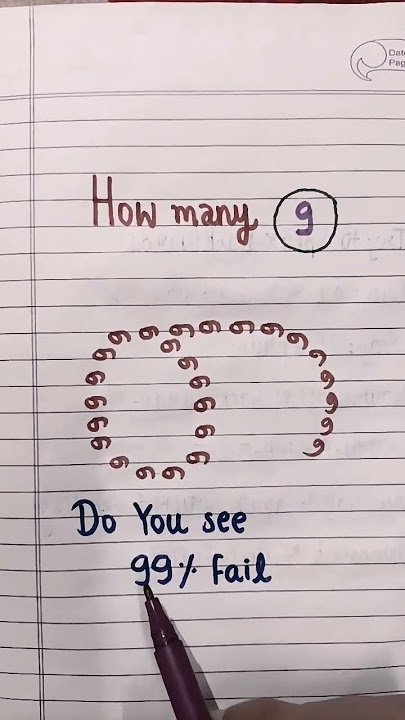 Date
Pag
How many 9
Do You see
99% Fail